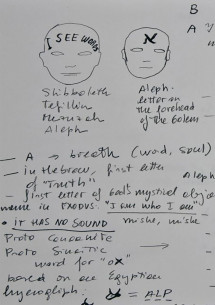 B
I SEE WORDS
א
A
Shibboleth
Tefillin
Mezuzah
Aleph
Aleph-
letter on
the forehead
of the Golem
— A → breath (word, soul)
— in Hebrew, first letter Aleph
of "Truth"
— first letter of God's mystical
name in EXODUS: "I am who I am"
• IT HAS NO SOUND
Proto Canaanite
Proto Sinaitic
word for "ox"
based on an Egyptian
hyeroglyph:
= ALP